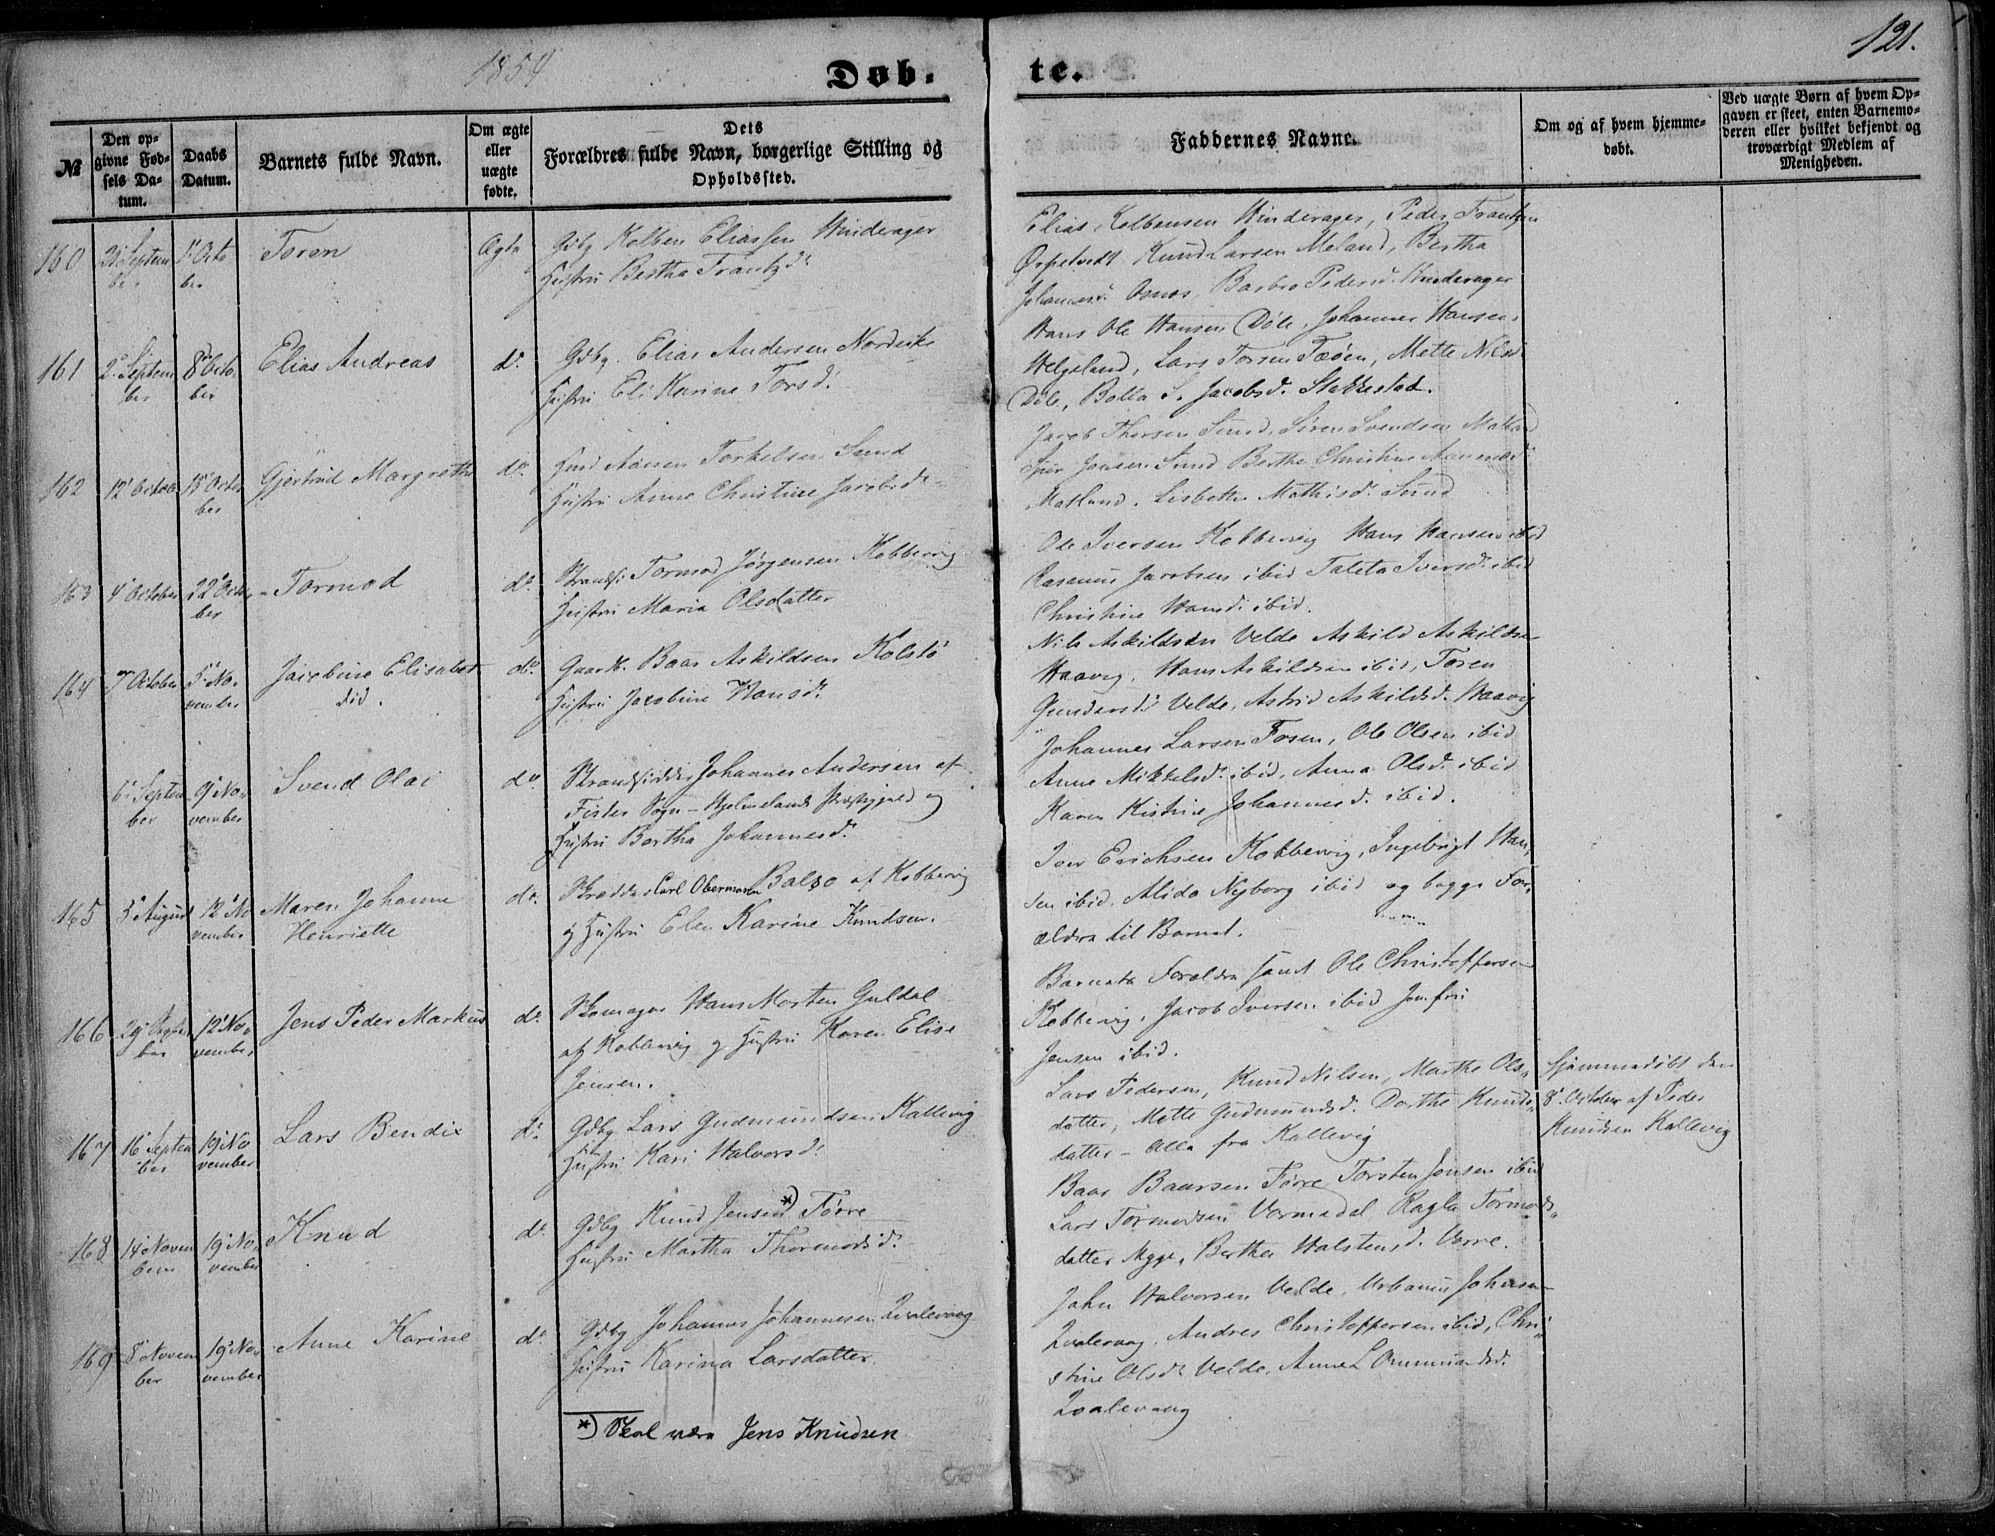 1854
Døb-
te.
121.
№
Den op-
givne Fød-
sels Da-
tum.
Daabs
Datum.
Barnets fulde Navn.
Om ægte
eller
uægte
fødte.
Dets
Forældres fulde Navn, borgerlige Stilling og
Opholdssted.
Faddernes Navne.
Om og af hvem hjemme-
døbt.
Ved uægte Børn af hvem Op-
gaven er skeet, enten Barnemo-
deren eller hvilket bekjendt og
troværdigt Medlem af
Menigheden.
160
Septem
ber
1 Octo
ber
Toren
Ægte
Gdbg Kolben Eliassen Hinderager
Hustru Bertha Frantzd.
Elias Kolbensen Hinderager, Peder Frantzen
Knud Larsen Meland, Bertha
Johannesd. Osnes, Barbro Pedersd. Hinderager
161
2 Septem
ber
8 Octo
ber
Elias Andreas
do.
Gdbg. Elias Andersen
Hustru Eli Karine Torsd.
Hans Ole Hansen Døle, Johannes Hansen
Helgeland, Lars Torsen Mette Nilsd
Døle, Jacobsd. Stakkestad.
162
12 October
15 Octo
ber
Gjertrud Margrethe
do.
Aanen Torkelsen Sund
Hustru Anne Christine Jacobsd.
Jacob Thorsen Sund, Søren Svendsen
Jonsen Sund Berthe Christine
Matland. Lisbeth Mathisd. Sund
163
4 October
22 Octo
ber
Tormod
do.
Strands. Tormod Jørgensen Kobbervig
Hustru Maria Olsdatter
Ole Iversen Kobbervig Hans Hansen ibid
Rasmus Jacobsen ibid Taleta Iversd. ibid
Christine Hansd. ibid.
164
7 October
5 No-
vember
Jacobine Elisabet
do.
Gaardk. Baar Askildsen Kolstø
Hustru Jacobine Hansd.
Nils Askildsen Velde Askild Askildsen
Haavig, Hans Askildsen ibid, Toren
Gundersd. Velde, Astrid Askildsd. Haavig
6 Septem
ber
9 No-
vember
Svend Olai
do.
Strandsidder Johannes Andersen af
Fister Sogn - Hjelmelands Præstegjeld og
Hustru Bertha Johannesd.
Johannes Larsen Fosen, Ole Olsen ibid
Anne Mikkelsd. ibid, Anna Olsd. ibid
Karen Kistine Johannesd. ibid.
165
5 August
12 No
vember
Maren Johanne
Henriette
do.
Skrædder Carl Obermann Balzo af Kobbervig
og Hustru Elen Karine Knudsen.
Iver Erichsen Kobbervig, Ingebrigt Han-
sen ibid. Alida Nyborg ibid og begge For-
ældre til Barnet.
166
29 Septem
ber
12 No-
vember
Jens Peder Markus
do.
Skomager Hans Morten Guldal
af Kobbervig og Hustru Karen Elise
Jensen.
Barnets Forældre samt Ole Christoffersen
Kobbervig, Jacob Iversen ibid Jomfru
Jensen ibid.
167
16 Septem
ber
19 No
vember
Lars Bendix
do.
Gdbg Lars Gudmundsen Kallevig
Hustru Kari Halvorsd.
Lars Pedersen, Knud Nilsen, Marthe Ols-
datter, Mette Gudmundsd. Dorthe Knuds-
datter - Alle fra Kallevig
Hjemmedøbt den
8 October af Peder
Knudsen Kallevig
168
14 Novem
ber
19 No-
vember
Knud
do.
Gdbg Knud Jensen *) Førre
Hustru Martha Thormodsd.
Baar Baarsen Førre Torsten Jonsen ibid
Lars Tormodsen Vormedal, Ragla Tormods-
datter Mygge, Berthe Halstensd. Vorre.
169
8 Novem
ber
19 No-
vember
Anne Karine
do.
Gdbg Johannes Johannesen Zvalevaag
Hustru Karina Larsdatter.
John Halvorsen Velde, Urbanus Johnsen
Zvalevaag, Andres Christoffersen ibid, Chri-
stine Olsd. Velde, Anne L Ommundsd.
Zvalevaag
*) Skal være Jens Knudsen